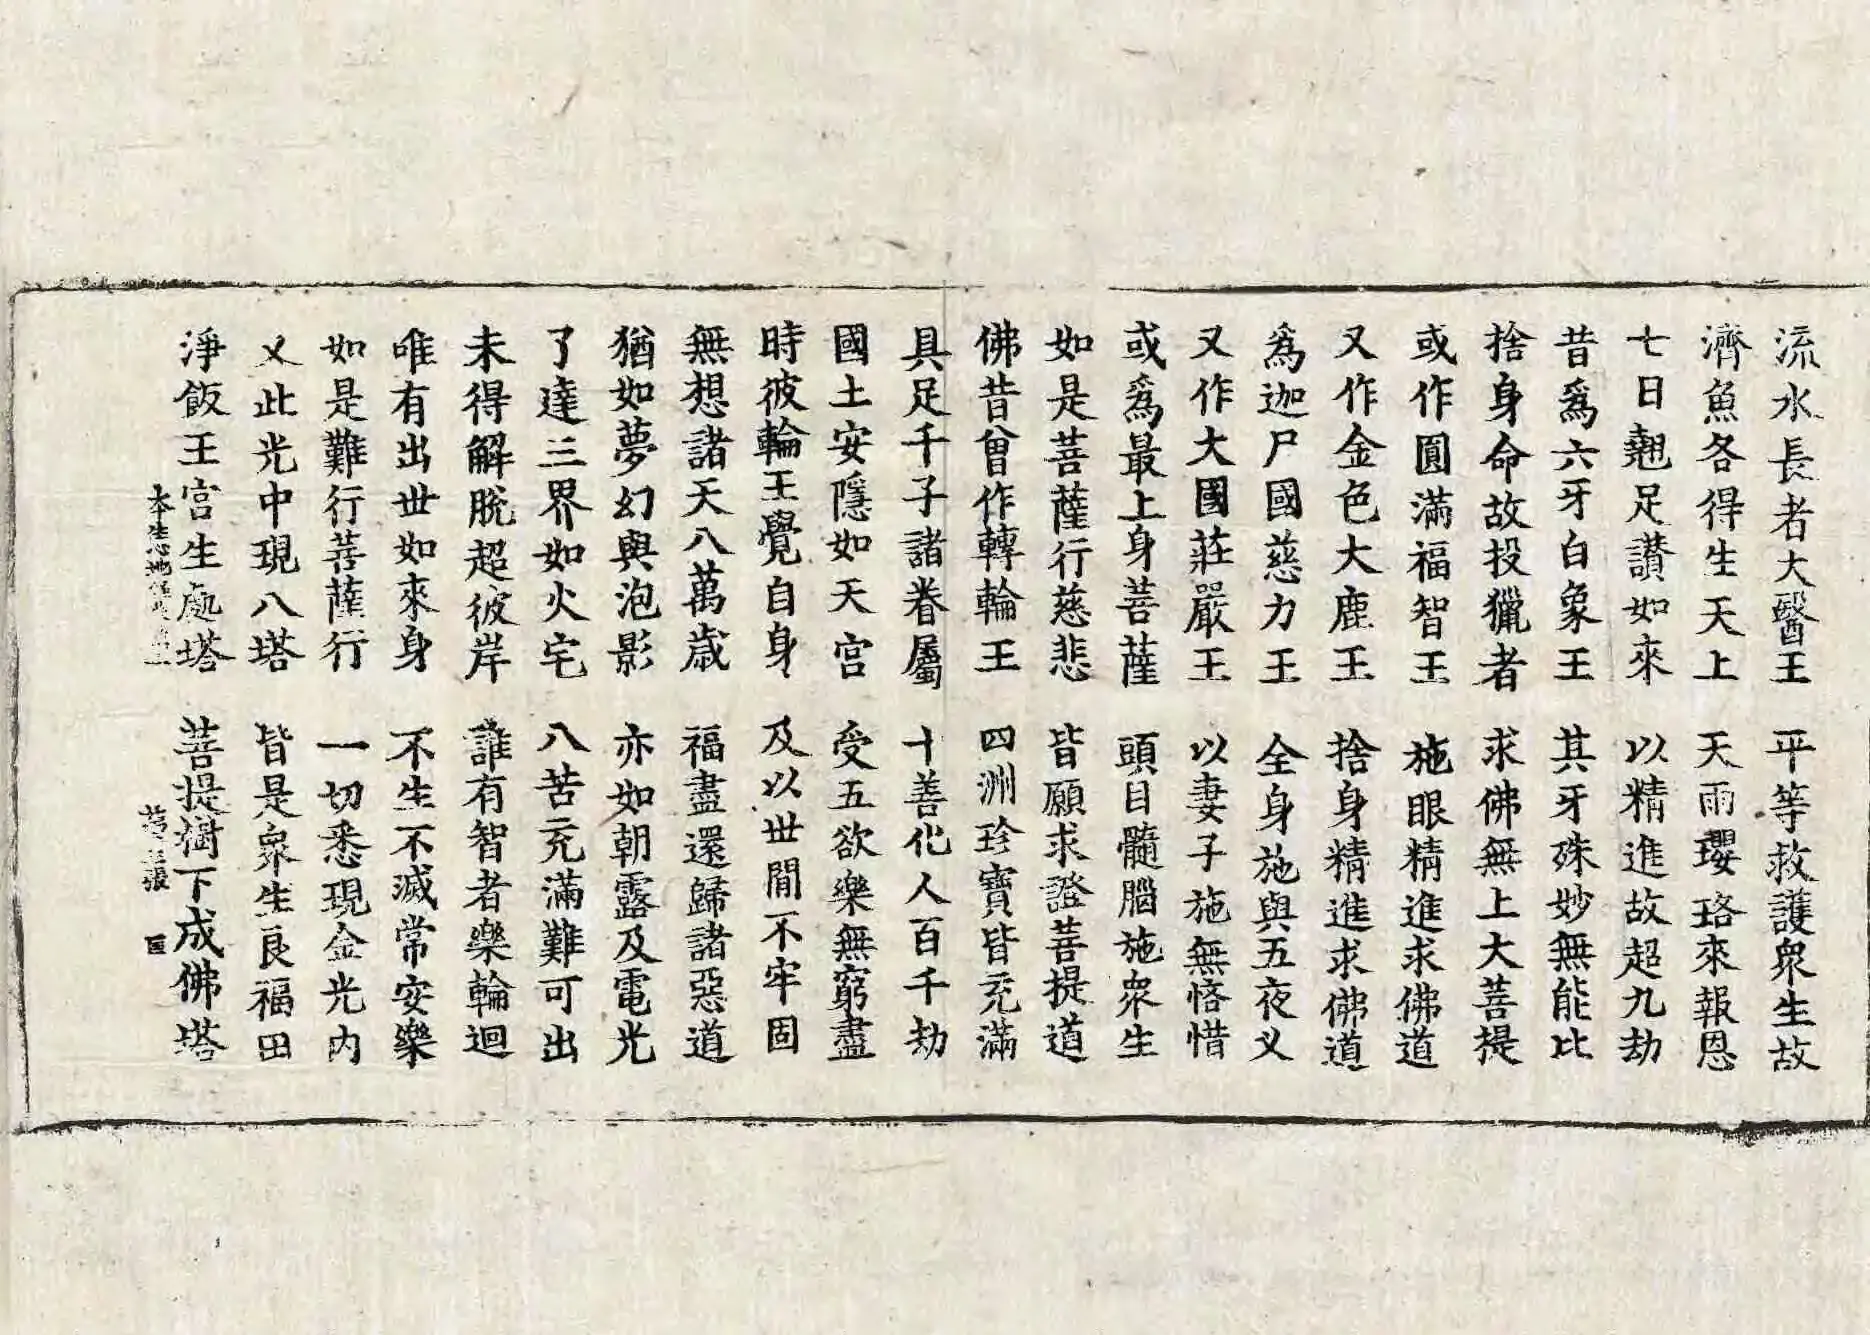 流水長者大醫王 平等救護衆生故
濟魚各得生天上 天雨瓔珞來報恩
七日翹足讃如來 以精進故超九劫
昔爲六牙白象王 其牙殊妙無能比
捨身命故投獵者 求佛無上大菩提
或作圓滿福智王 施眼精進求佛道
又作金色大鹿王 捨身精進求佛道
爲迦尸國慈力王 全身施與五夜义
又作大國莊嚴王 以妻子施無悋惜
或爲最上身菩薩 頭目髓腦施衆生
如是菩薩行慈悲 皆願求證菩提道
佛昔曾作轉輪王 四洲珍寶皆充滿
具足千子諸眷屬 十善化人百千劫
國土安隱如天宮 受五欲樂無窮盡
時彼輪王覺自身 及以世閒不牢固
無想諸天八萬歳 福盡還歸諸惡道
猶如夢幻與泡影 亦如朝露及電光
了達三界如火宅 八苦充滿難可出
未得解脫超彼岸 誰有智者樂輪迴
唯有出世如來身 不生不滅常安樂
如是難行菩薩行 一切悉現金光內
又此光中現八塔 皆是衆生良福田
淨飯王宮生處塔 菩提樹下成佛塔
本生心地 張